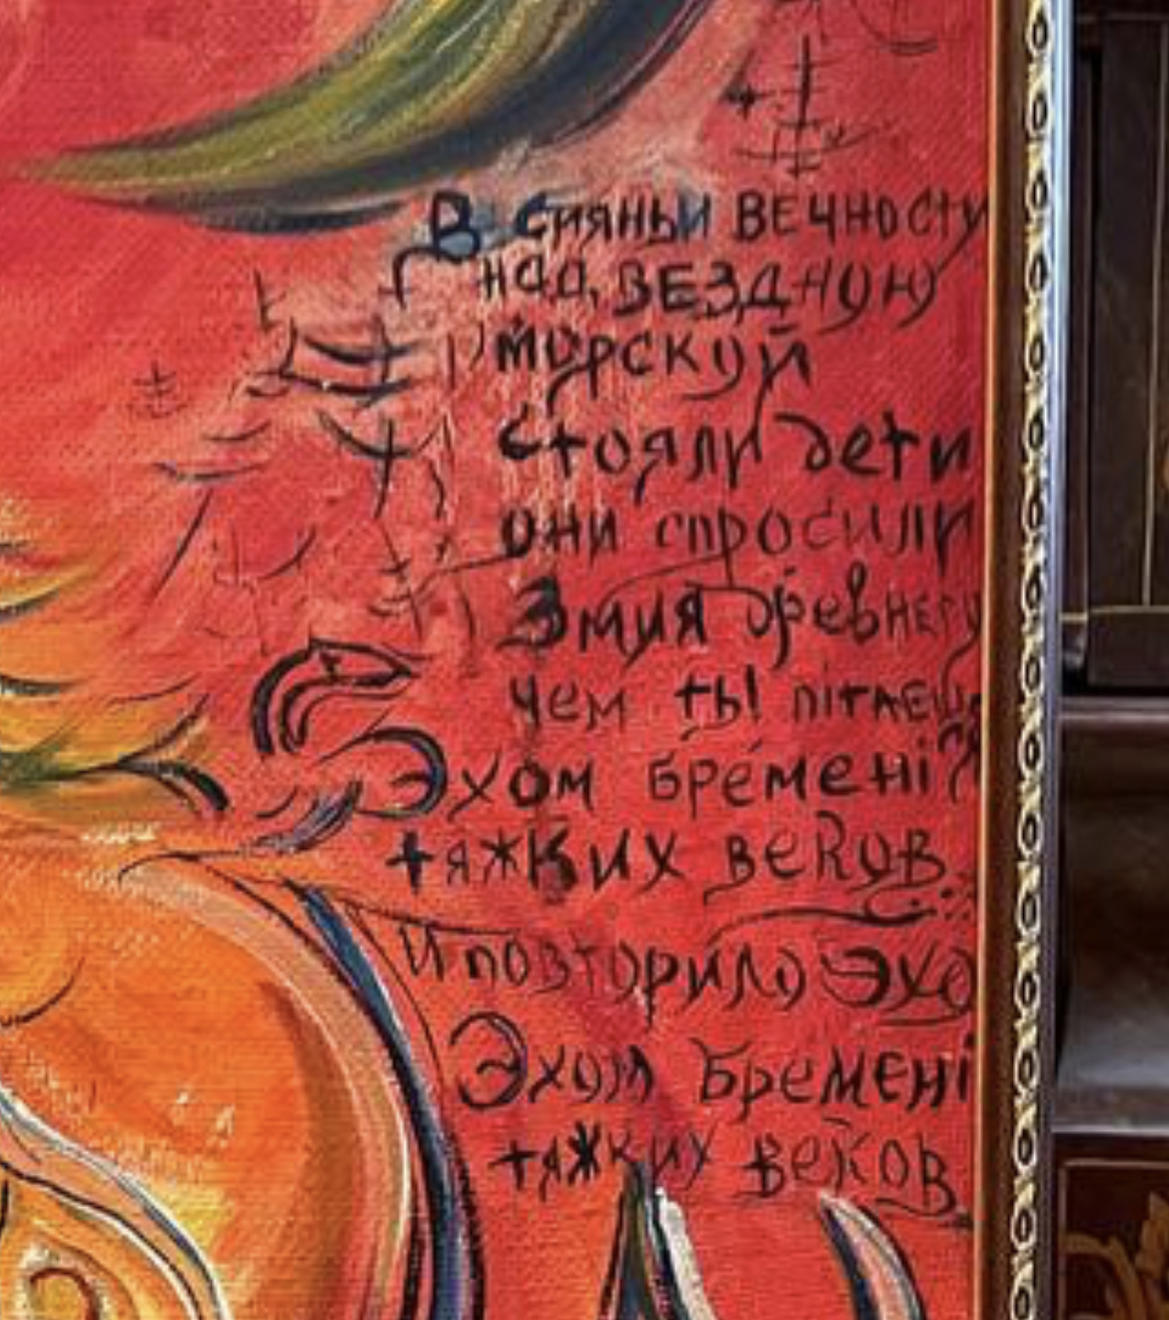 В сияньи вечносту
над бездною
морской
стояли дети
они спросили
Змия древнего
чем ты пітаеш
ся?
Эхом бремені
тяжких веков
И повторило эхо
Эхом бремені
тяжких веков